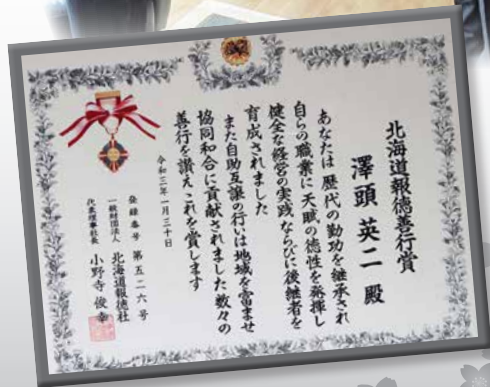 北海道報徳善行賞
澤頭英二 殿
あなたは歴代の勤功を継承され
自らの職業に天賦の徳性を発揮し
健全な経営の実践ならびに後継者を
育成されました
また自助互譲の行いは地域を富ませ
協同和合に貢献されました数々の
善行を讃えこれを賞します
令和三年一月三十日
登録番号 第五二六号
一般財団法人 北海道報徳社
代表理事社長 小野寺俊幸